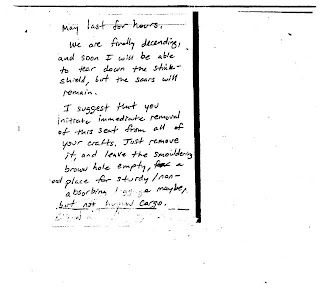 May last for hours.
We are finally decending,
and soon I will be able
to tear down the stink-
shield, but the scars will
remain.
I suggest that you
initiate immediate removal
of this seat from all of
your crafts. Just remove
it, and leave the smouldering
brown hole empty, a
place for sturdy/non-
absorbing maybe,
but not human cargo.